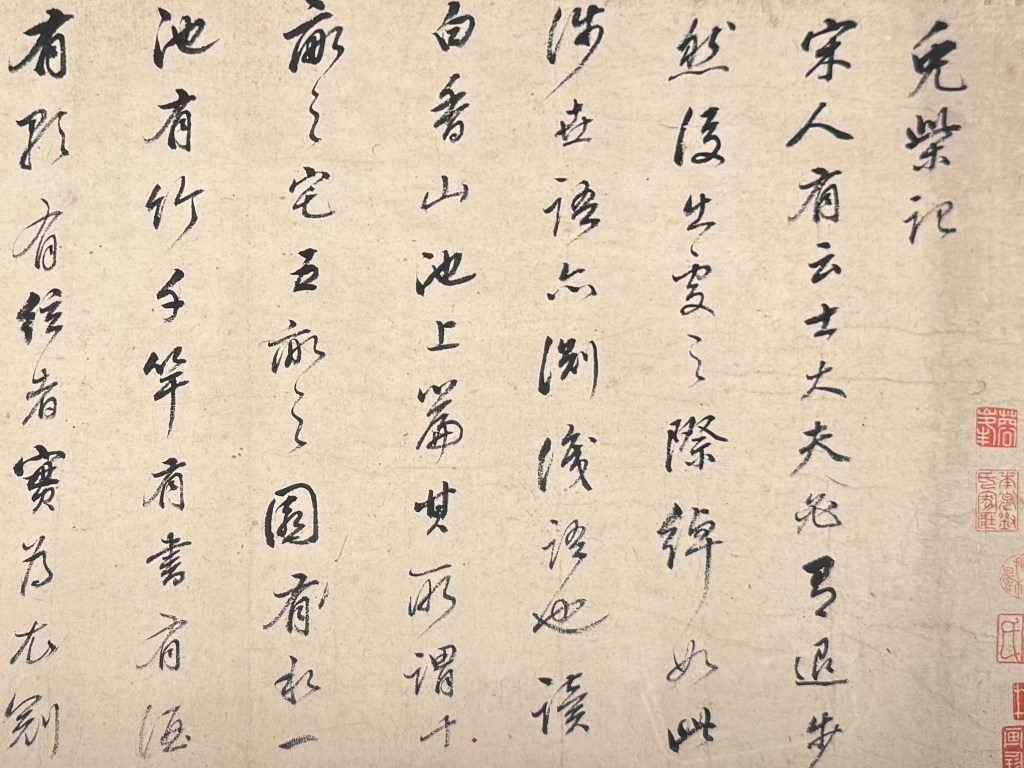 兔柴記
宋人有云士大夫必有退步
然後出處之際綽如此
涉世語亦淵淺語也讀
白香山池上篇其所謂十
畝之宅五畝之園有水一
池有竹千竿有書有酒
有歌有絃者實為尤
蓉峯